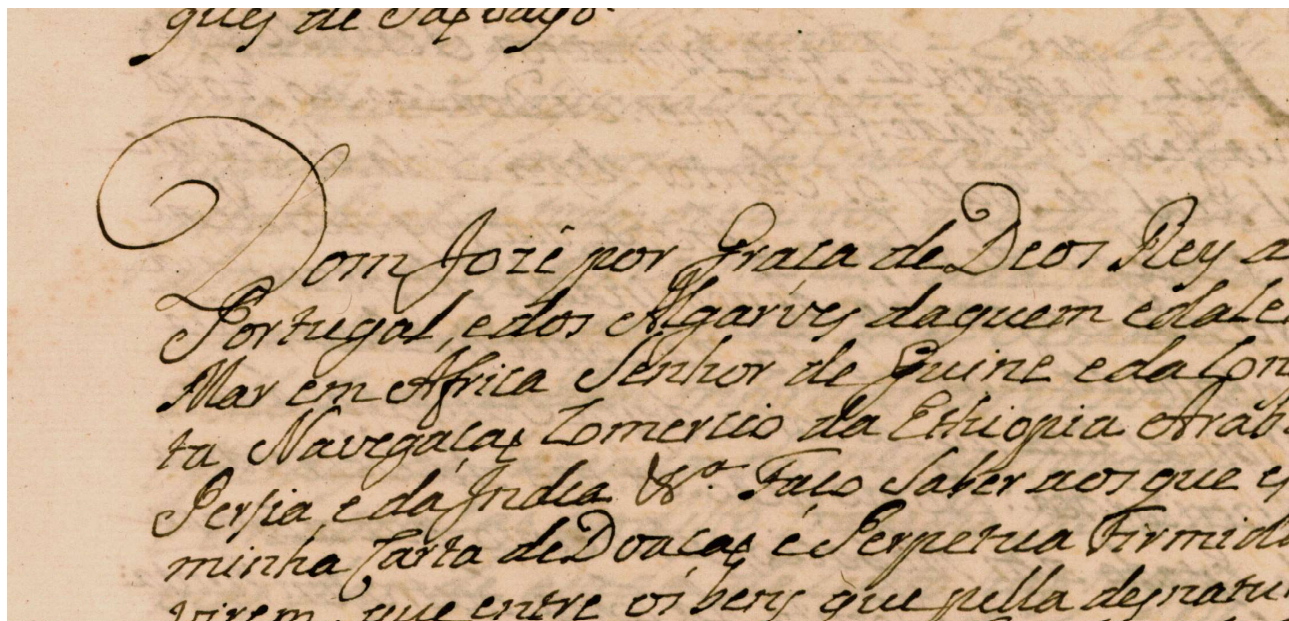 ques de Sap vayo.
Dom Jozê por Graca de Deos Rey
Portugal, edos Algarves daquem edale
Mar em Africa Senhor de Guine eda Con
ta Navegaçaõ Comercio da Ethiopia Arab
Persia, eda India &ª. Faço Saber aos que es
minha Carta de Doacaõ é Perpetua Firmid
virem, que entre os bens que pella desnatu